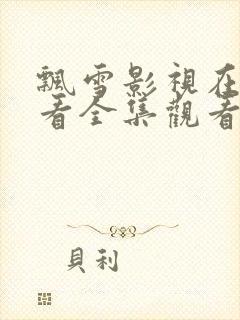 飄雪影視在
看全集觀看
貝利